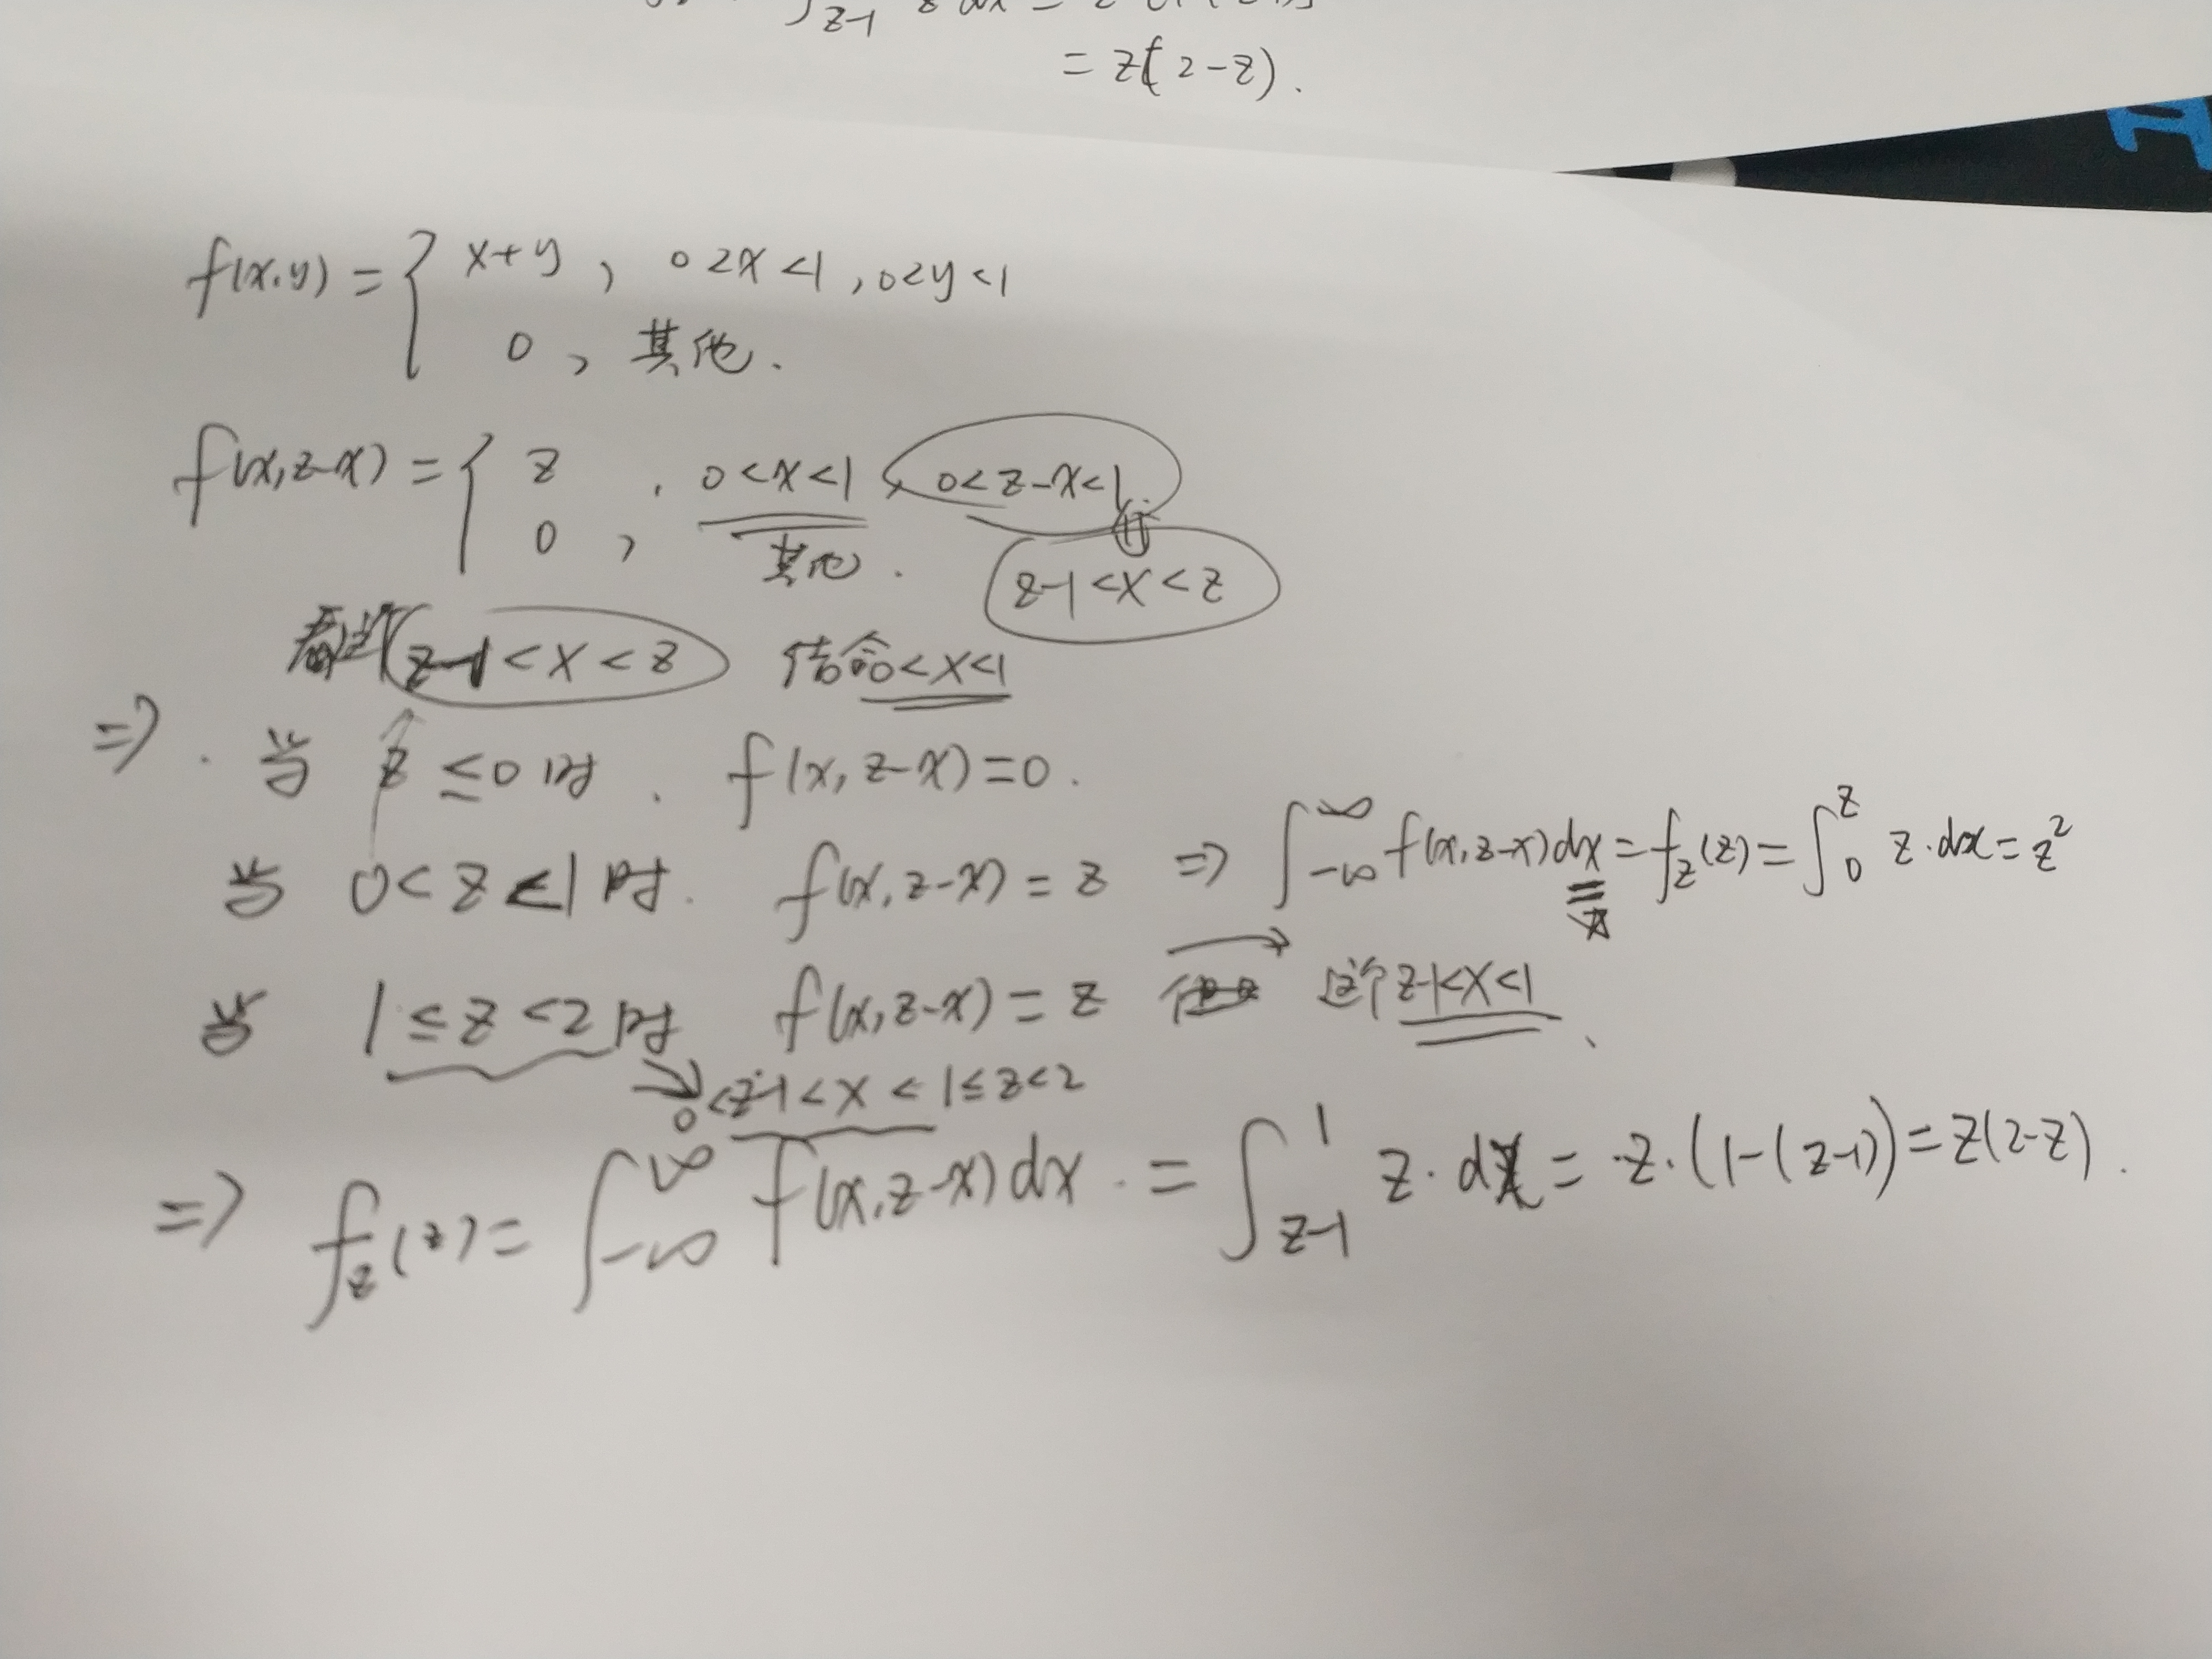 = z(2-z).
f(x,y) = { x+y , 0<x<1 , 0<y<1
0 , 其他.
f(x,z-x) = { z , 0<x<1 , 0<z-x<1
0 , 其他.
z-1<x<z
z-1<x<z 结合0<x<1
⇒ . 当 z≤0时 . f(x,z-x)=0.
当 0<z<1时. f(x,z-x)=z ⇒ ∫_{-∞}^{∞} f(x,z-x)dx = f_z(z) = ∫_0^z z·dx = z²
当 1≤z<2时 f(x,z-x)=z → 这个z-1<x<1
↘ 0<z-1<x<1≤z<2
⇒ f_z(z) = ∫_{-∞}^{∞} f(x,z-x)dx. = ∫_{z-1}^1 z·dx = z·(1-(z-1)) = z(2-z).